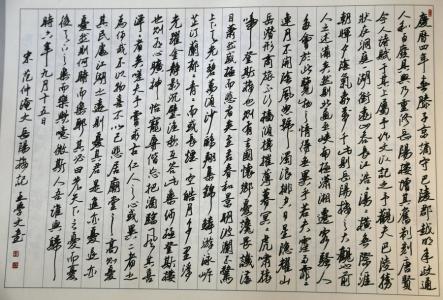 慶曆四年春滕子京謫守巴陵郡越明年政通
人和百廢具興乃重修岳陽樓增其舊制刻唐賢
今人詩賦于其上屬予作文以記之予觀夫巴陵勝
狀在洞庭一湖銜遠山吞長江浩浩湯湯橫無際涯
朝暉夕陰氣象萬千此則岳陽樓之大觀也前
人之述備矣然則北通巫峽南極瀟湘遷客騷人
多會於此覽物之情得無異乎若夫霪雨霏霏
連月不開陰風怒號濁浪排空日星隱耀山
岳潛形商旅不行檣傾楫摧薄暮冥冥虎嘯猿
啼登斯樓也則有去國懷鄉憂讒畏譏滿
目蕭然感極而悲者矣至若春和景明波瀾不驚
上下天光一碧萬頃沙鷗翔集錦鱗游泳岸
芷汀蘭郁郁青青而或長煙一空皓月千里浮
光躍金靜影沉璧漁歌互答此樂何極登斯樓
也則有心曠神怡寵辱偕忘把酒臨風其喜
洋洋者矣嗟夫予嘗求古仁人之心或異二者之
為何哉不以物喜不以己悲居廟堂之高則憂
其民處江湖之遠則憂其君是進亦憂退亦
憂然則何時而樂耶其必曰先天下之憂而憂
後天下之樂而樂歟噫微斯人吾誰與歸
時六年九月十五日
宋范仲淹文岳陽樓記